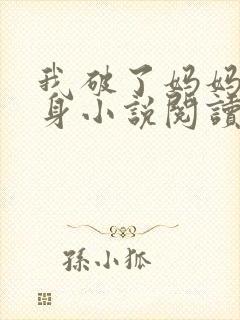 我破了妈妈
身小说閱讀
孫小狐